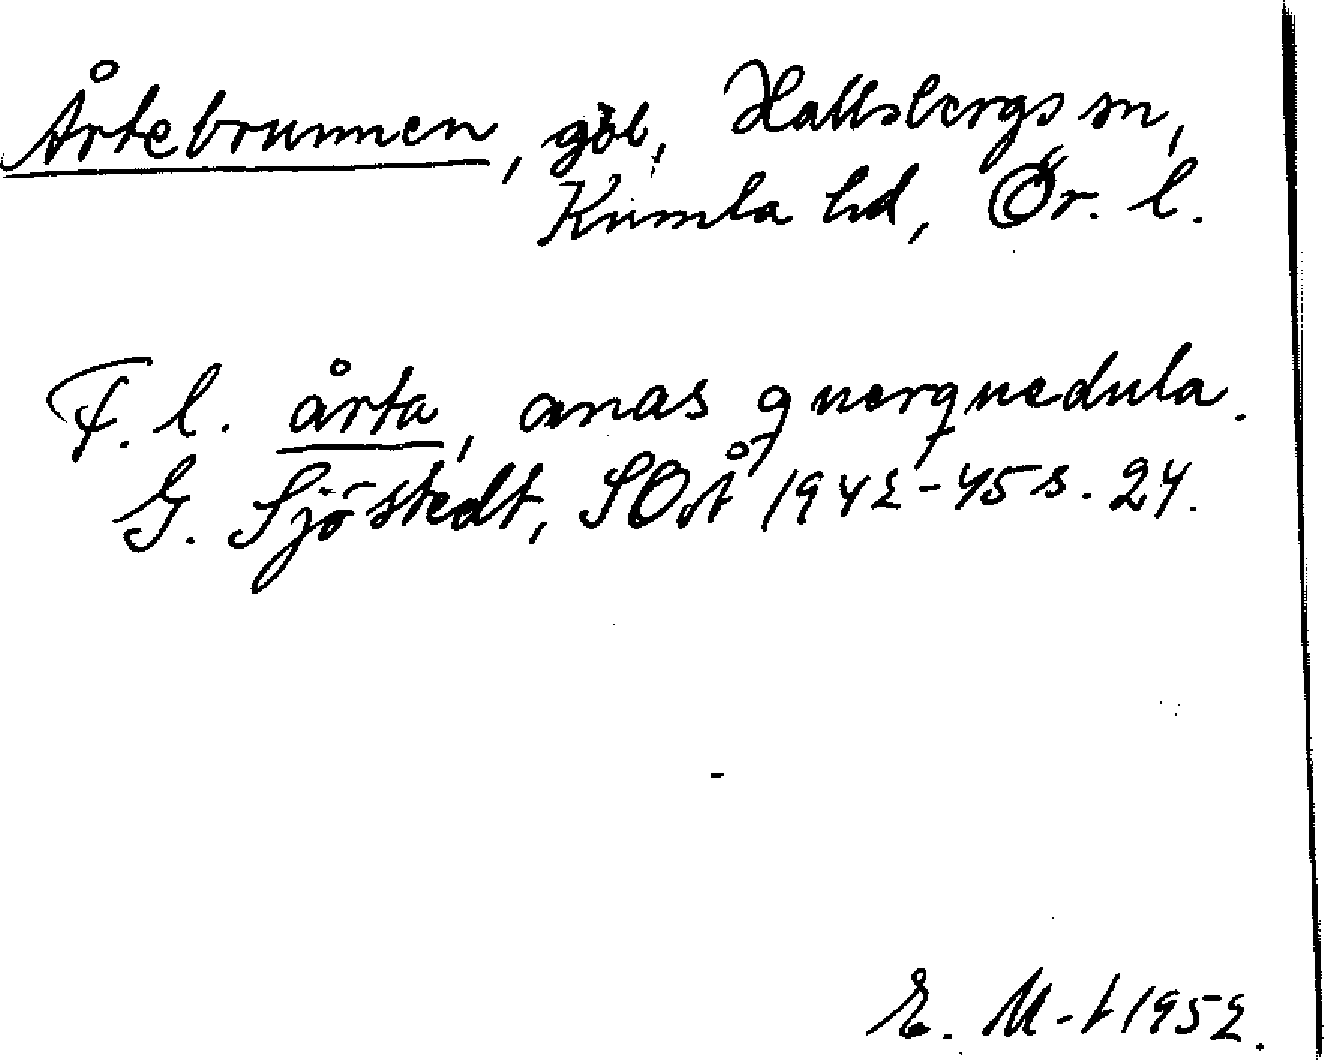 Årtebrunnen, göl, Hallsbergs sn,
Kumla hd, Ör. l.
F. l. årta, anas querquedula.
G. Sjöstedt, SOÅ 1942-45 s. 24.
E. M-t 1952.